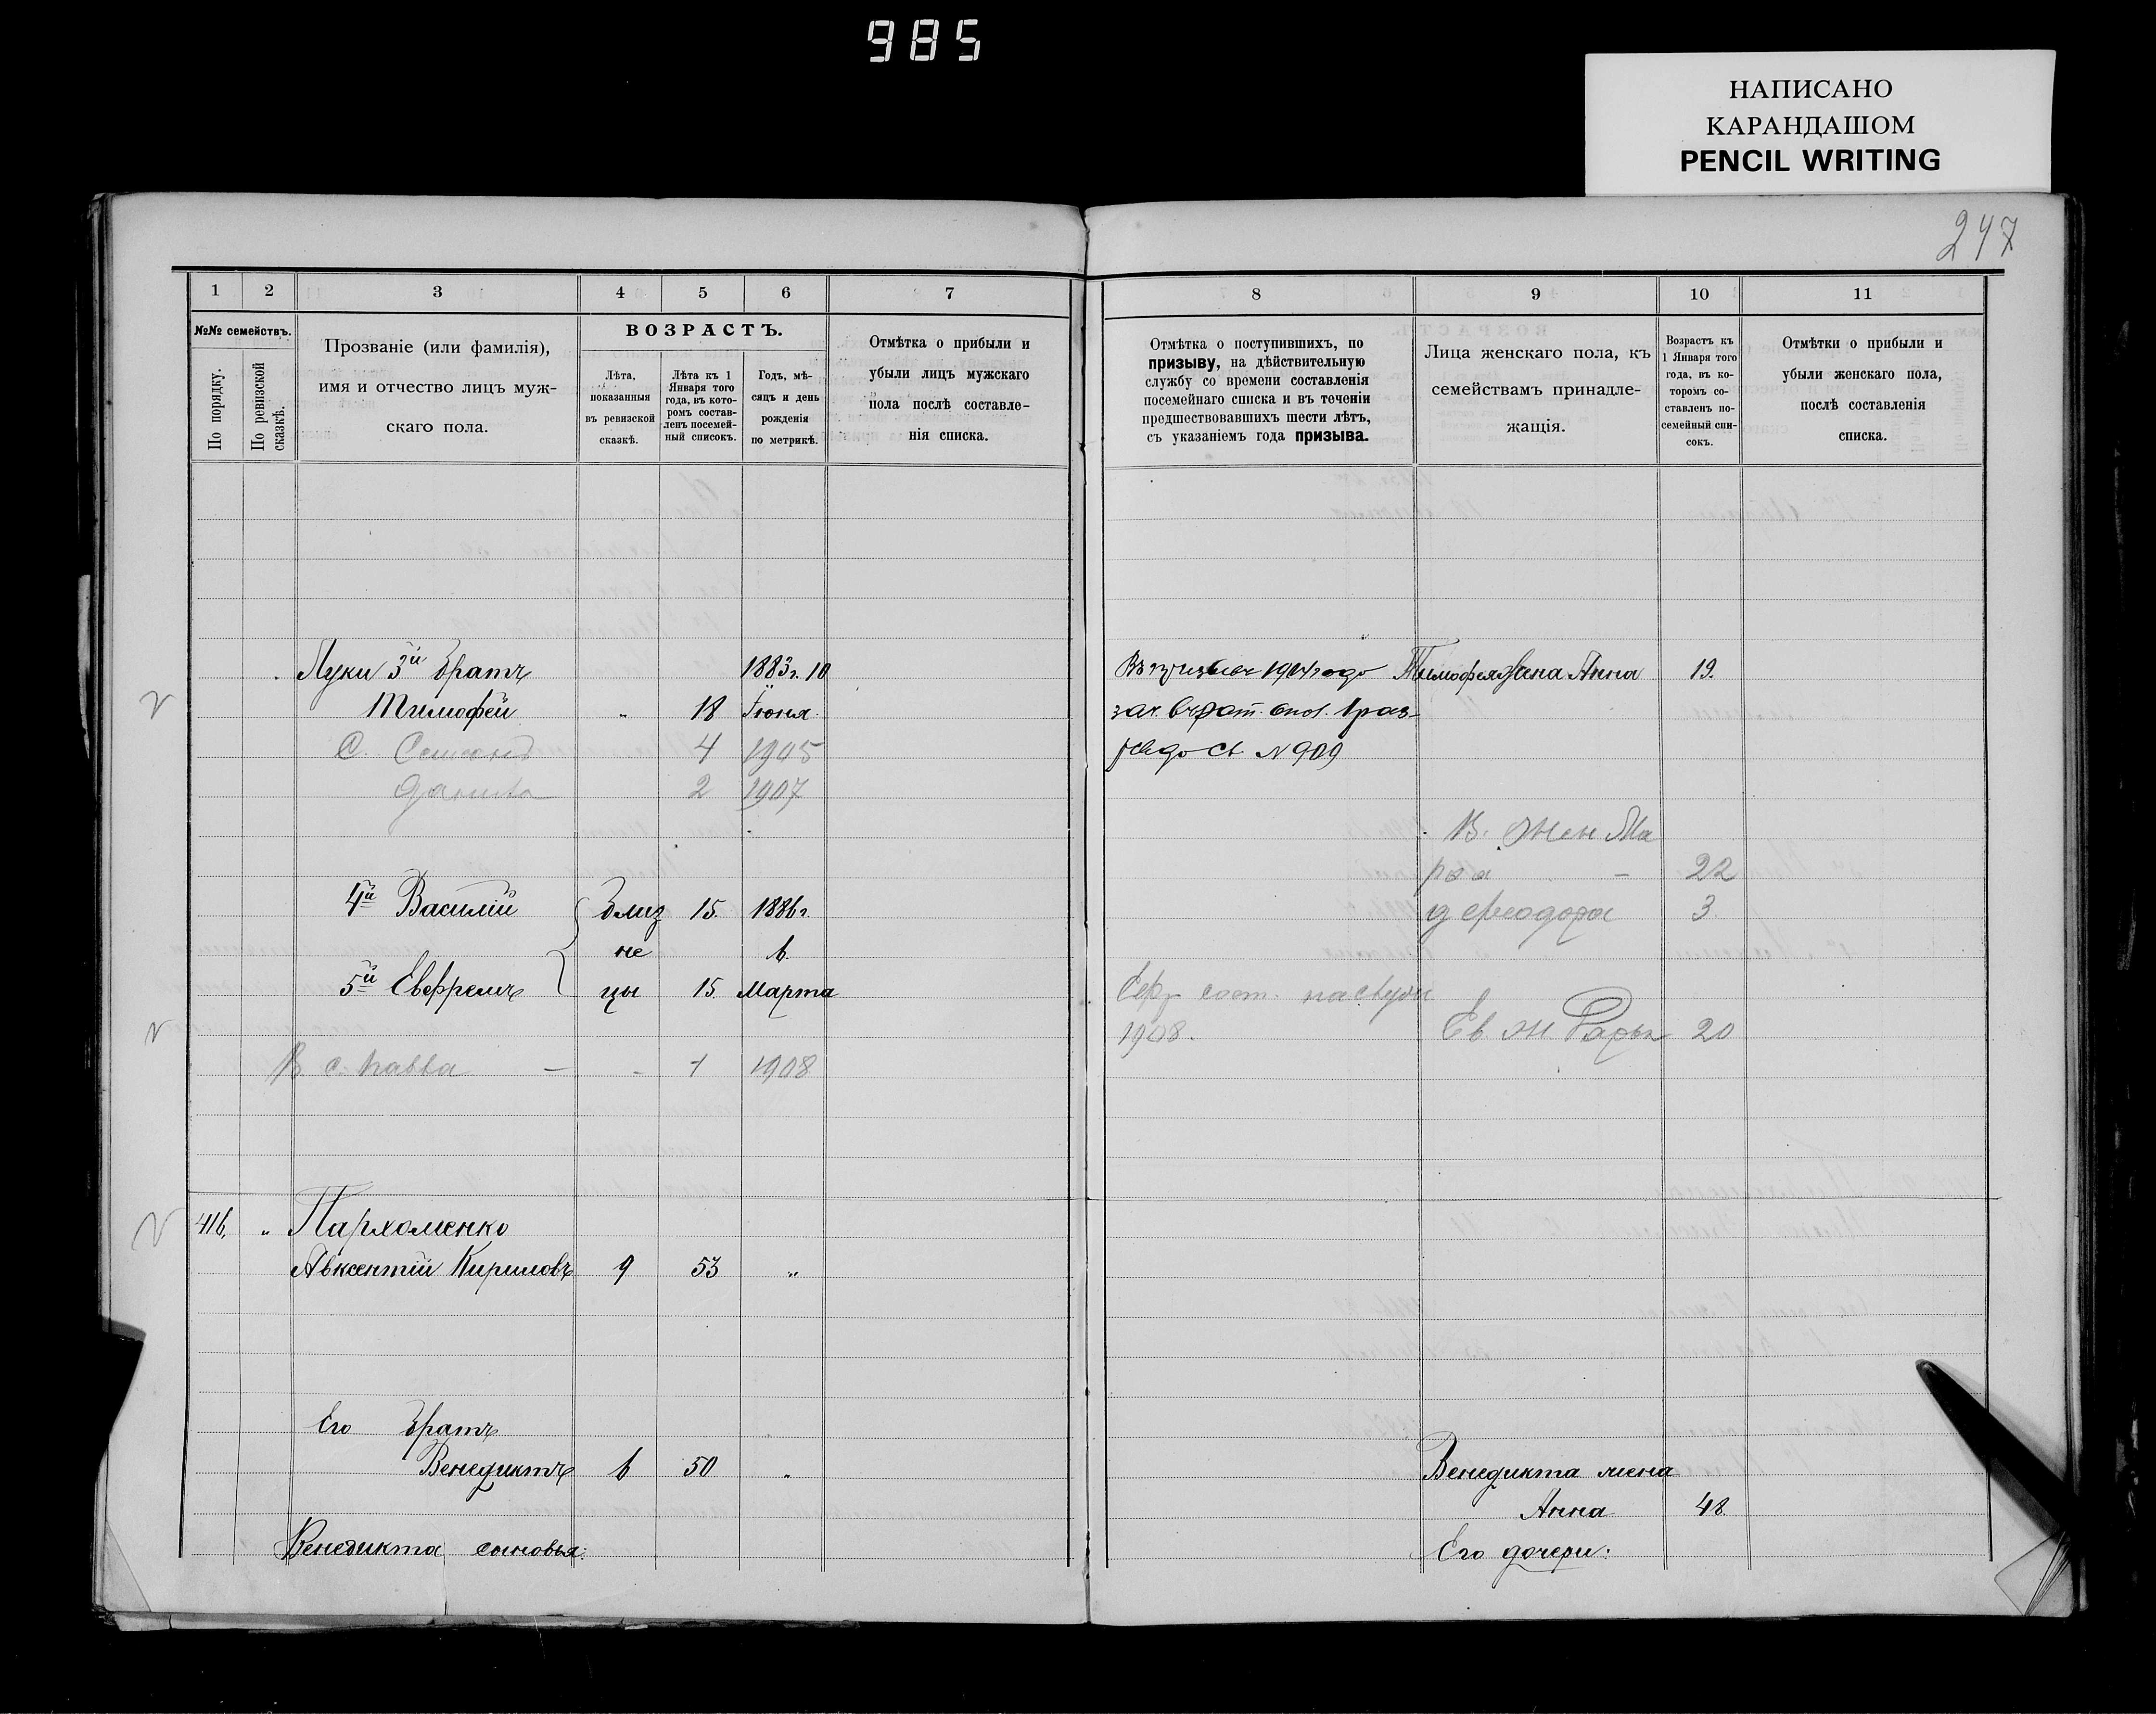 985
НАПИСАНО
КАРАНДАШОМ
PENCIL WRITING
247
1 2 3 4 5 6 7
№№ семействъ.
По порядку.
По ревизской сказкѣ.
Прозваніе (или фамилія),
имя и отчество лицъ муж-
скаго пола.
ВОЗРАСТЪ.
Лѣта,
показанныя
въ ревизской
сказкѣ.
Лѣта къ 1
Января того
года, въ кото-
ромъ состав-
ленъ посемей-
ный списокъ.
Годъ, мѣ-
сяцъ и день
рожденія
по метрикѣ.
Отмѣтка о прибыли и
убыли лицъ мужскаго
пола послѣ составле-
нія списка.
Луки 3й братъ 1883г. 10
Тимофей „ 18 Іюня.
С. Семенъ 4 1905
Данило 2 1907
4й Василій близ 15. 1886г.
не 6.
5й Евфремъ цы 15. Марта
В с. Павва — - 1 1908
416. „ Пархоменко
Авксентій Кириловъ 9 53 „
Его братъ
Венедиктъ 6 50 „
Венедикта сыновья:
8 9 10 11
Отмѣтка о поступившихъ, по
призыву, на дѣйствительную
службу со времени составленія
посемейнаго списка и въ теченіи
предшествовавшихъ шести лѣтъ,
съ указаніемъ года призыва.
Лица женскаго пола, къ
семействамъ принадле-
жащія.
Возрастъ къ
1 Января того
года, въ ко-
торомъ со-
ставленъ по-
семейный спи-
сокъ.
Отмѣтки о прибыли и
убыли женскаго пола,
послѣ составленія
списка.
Въ призывѣ 1904 года Тимофея жена Анна 19.
зач. в рат. опол. 1 раз-
ряда св. N 909
В. жен Ма
рѳа - 22
д Феодора 3
1908. Ев. ж 20
Венедикта жена
Анна 48.
Его дочери: